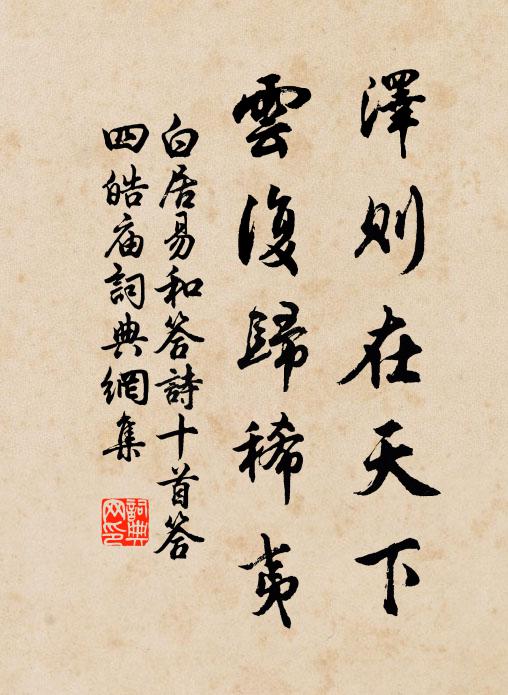 澤則在天下
雲復歸稀夷
白居易和答詩十首答
四皓庙詞典網集
詞典网印